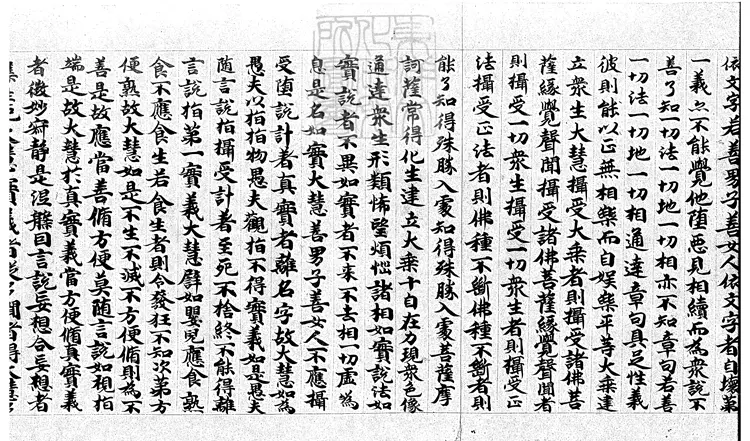 依文字若善男子善女人依文字者自壞第
一義亦不能覺他墮惡見相續而為衆說不
善了知一切法一切地一切相亦不知章句若善
一切法一切地一切相通達章句具足性義
彼則能以正無相樂而自娛樂平等大乘建
立衆生大慧攝受大乘者則攝受諸佛菩
薩緣覺聲聞攝受諸佛菩薩緣覺聲聞者
則攝受一切衆生攝受一切衆生者則攝受正
法攝受正法者則佛種不斷佛種不斷者則
能了知得殊勝入處知得殊勝入處菩薩摩
訶薩常得化生建立大乘十自在力現衆色像
通達衆生形類悕望煩惱諸相如實說法如
實說者不異如實者不來不去相一切虛為
息是名如實大慧善男子善女人不應攝
受隨說計者真實者離名字故大慧如為
愚夫以指指物愚夫觀指不得實義如是愚夫
隨言說指攝受計著至死不捨終不能得離
言說指第一實義大慧譬如嬰兒應食熟
食不應食生若食生者則令發狂不知次第方
便熟故大慧如是不生不滅不方便脩則為不
善是故應當善脩方便莫隨言說如視指
端是故大慧於真實義當方便脩真實義
者微妙寂靜是涅槃因言說妄想合妄想者